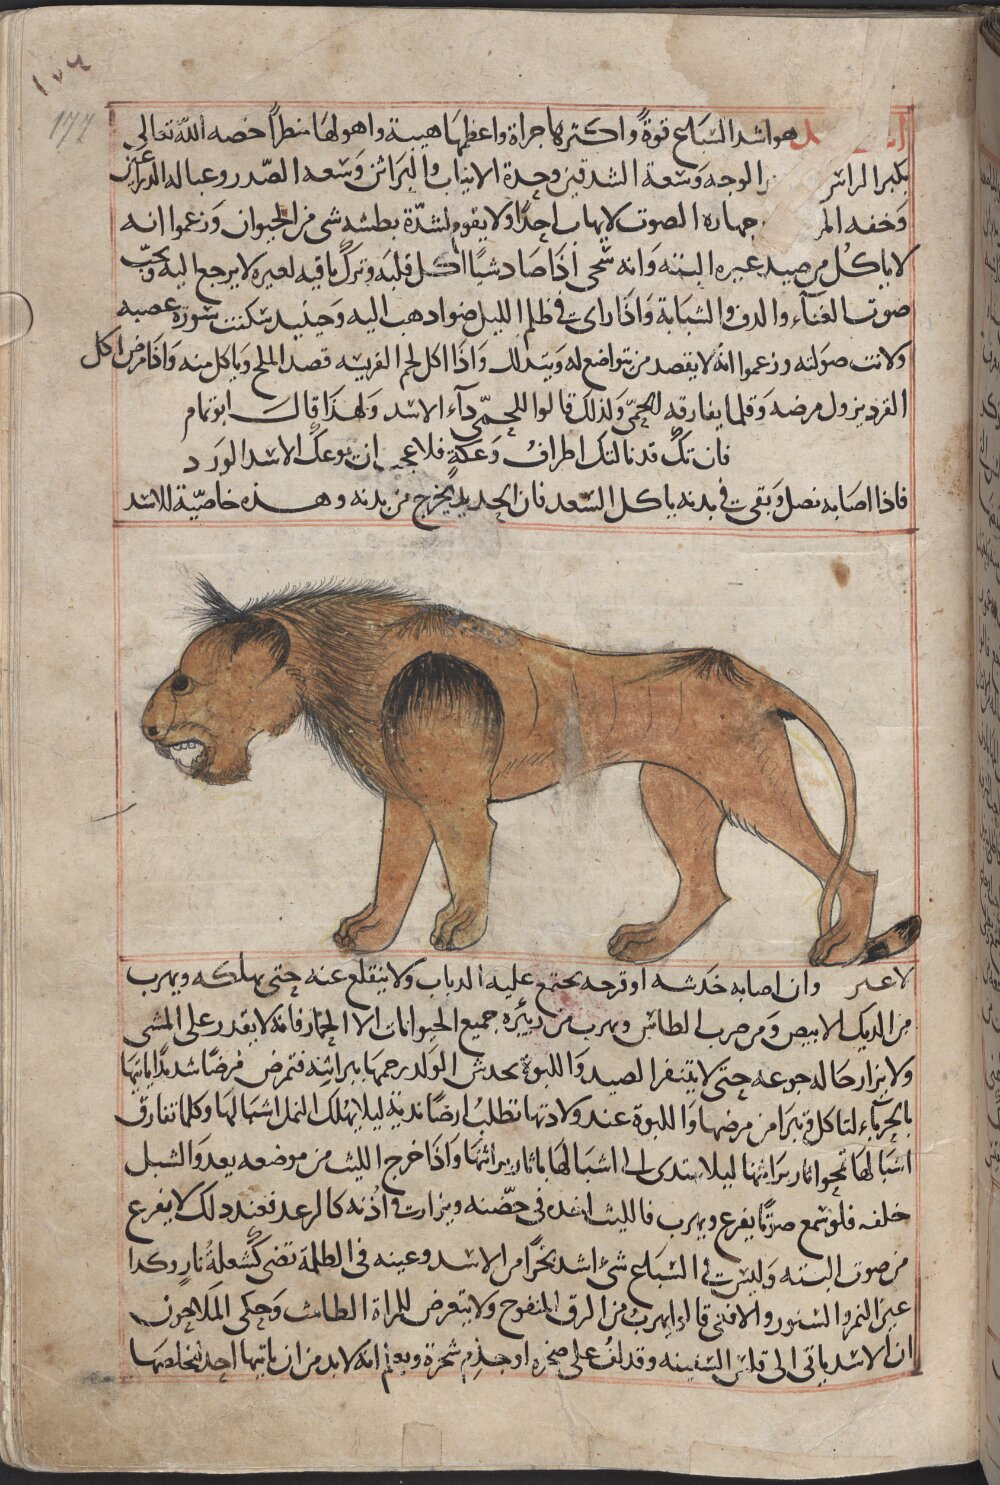 ١٧٦
177
هو اشد السباع قوةً واكثرها جراة واعظمها هيبة واهولها منظرًا خصه الله تعالى
بكبر الراس الوجه وسعة الشدقين وحدة الانياب والبراثن وسعه الصدر وعباله الذراعين
وخفه جهاره الصوت لا يهاب احدًا ولا يقوم لشدّة بطشه شى من الحيوان وزعموا انه
لا ياكل من صيد غيره البته وانه سخى اذا صاد شيًا اكل قلبه وترك باقيه لغيره لا يرجع اليه ويحبّ
صوت الغناء والدف والشبابة واذا راى فى ظلم الليل ضوا ذهب اليه وحينيد سكنت سورة غصبه
ولانت صولته وزعموا انه لا يقصد من يتواضع له ويتدلل واذا اكل لحم الفريسه قصد الملح وياكل منه واذا مرض اكل
القرد يزول مرضه وقلما يفارقه الحمّى ولذلك قالوا للحمّى داء الاسد ولهذا قال ابو تمام
فان تكُ قد نالتك اطرافُ وعكةٍ فلا عجب ان يوعك الاسد الورد
فاذا اصابه نصل وبقى فى بدنه ياكل السعد فان الحديد يخرج من بدنه وهذه خاصيّة للاسد
لا غير وان اصابه خدشه او قرحه يجتمع عليه الدباب ولا ينقلع عنه حتى يهلكه ويهرب
من الديك الابيض ومن ضرب الطاس ويهرب من زئيره جميع الحيوانات الا الحمار فانه لا يقدر على المشى
ولا يزار حاله جوعه حتى لا يتنفر الصيد واللبوة يخدش الولد رحمها ببراثنه فتمرض مرضًا شديدًا ياتيها
بالحرباء لتاكل فتبرا من مرضها واللبوة عند ولادتها تطلب ارضًا ندية ليلا يهلك النمل اشبالها وكلما تفارق
اشبالها تمحو اثار براثنها ليلا يهتدى الى اشبالها باثار براثنها واذا خرج الليث من موضعه يعدو الشبل
خلفه فلو سمع صوتًا يفزع ويهرب فالليث اخذه فى حضنه ويزار فى اذنه كالرعد فعند دلك لا يفزع
من صوت البته وليس فى السباع شئ اشد بخرًا من الاسد وعينه فى الظلمة تضى كشعلة نار وكدا
عين النمر والسنور والافعى قالوا يهرب من الزق المنفوح ولا يتعرض للمراة الطامث وحكى الملاحون
ان الاسد ياتى الى قلس السفينه وقد لف على صخره او جذم شجرة ويعلم انه لابد من ان ياتيها احد ليخلصها